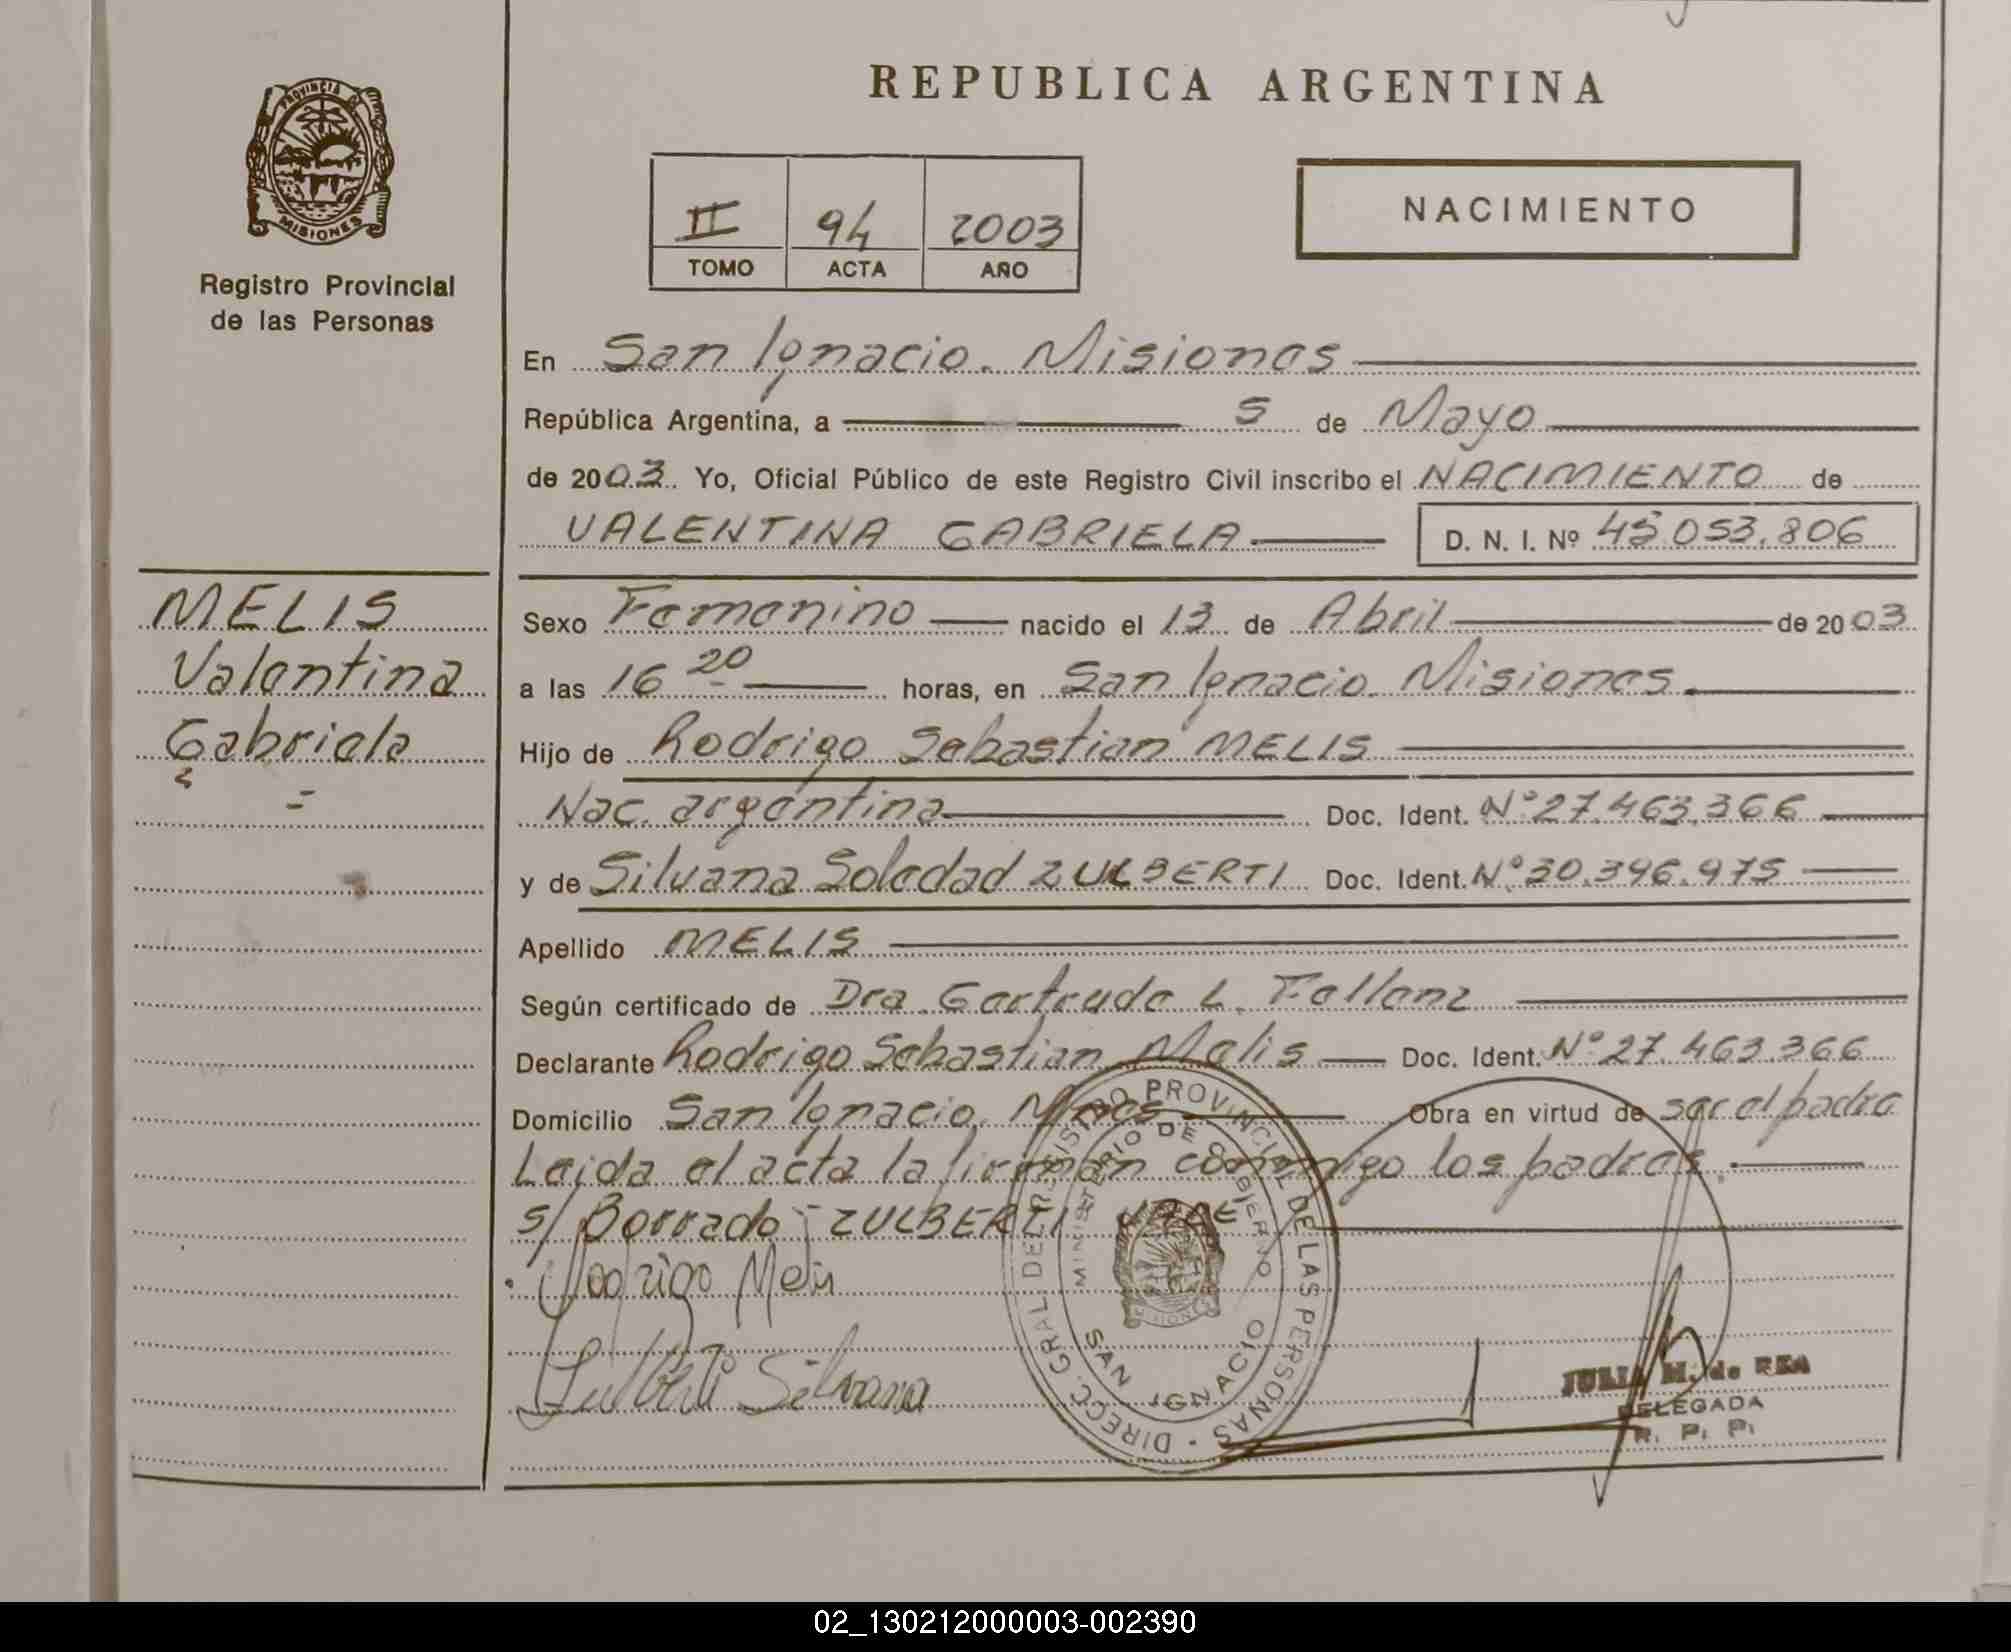 REPUBLICA ARGENTINA
PROVINCIA DE
MISIONES
Registro Provincial
de las Personas
II 94 2003
TOMO ACTA AÑO
NACIMIENTO
En San Ignacio. Misiones
República Argentina, a 5 de Mayo
de 2003. Yo, Oficial Público de este Registro Civil inscribo el NACIMIENTO de
VALENTINA GABRIELA D. N. I. Nº 45.053.806
MELIS
Valentina
Gabriela
Sexo Femenino nacido el 13 de Abril de 2003
a las 16 20 horas, en San Ignacio. Misiones.
Hijo de Rodrigo Sebastian MELIS
Nac. argentina Doc. Ident. Nº 27.463.366
y de Silvana Soledad ZULBERTI Doc. Ident. Nº 30.396.975
Apellido MELIS
Según certificado de Dra. Gertrude L. Fellenz
Declarante Rodrigo Sebastian Melis Doc. Ident. Nº 27.463.366
Domicilio San Ignacio. Mnes Obra en virtud de ser el padre
Leida el acta la firman conmigo los padres.
s/ Borrado - ZULBERTI VALE
Rodrigo Melis
Zulberti Silvana
DIRECC. GRAL DEL REGISTRO PROVINCIAL DE LAS PERSONAS
MINISTERIO DE GOBIERNO
SAN IGNACIO
JULIA M. de REA
DELEGADA
R. P. P.
02_130212000003-002390